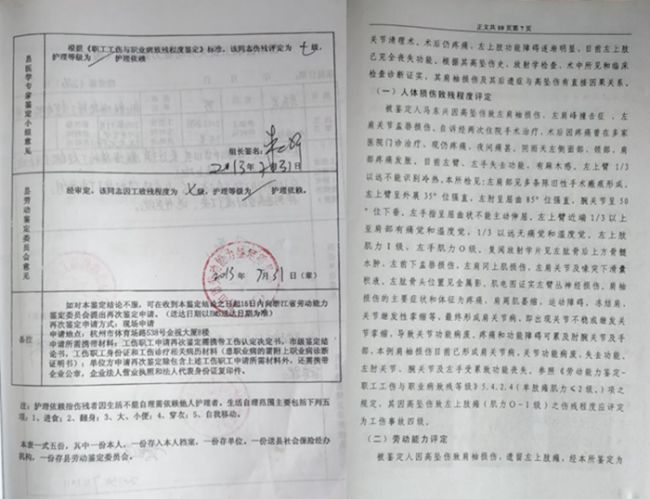 根据《职工工伤与职业病致残程度鉴定》标准,该同志伤残评定为 七 级,
护理等级为 护理依赖
县医学专家鉴定小组意见
组长签名:
2013年7月31日
经审定,该同志因工致残程度为 七 级,护理等级为 护理依赖。
县劳动鉴定委员会意见
2013年 7月31日(章)
备注
如对本鉴定结论不服,可在收到本鉴定结论之日起15日内向浙江省劳动能力
鉴定委员会提出再次鉴定申请。(送达日期以邮政送达日期为准)
再次鉴定申请方式:现场申请
申请地点:杭州市体育场路538号金祝大厦8楼
申请所需携带材料:工伤职工申请再次鉴定需携带工伤认定决定书,市级鉴定结
论书,工伤职工身份证和工伤诊疗相关病历材料(患职业病的需附上职业病诊断
证明书);单位方申请再次鉴定除包含上述工伤职工申请所需材料外,还需携带
企业公章、企业法人营业执照和法人代表身份证复印件。
注:护理依赖指伤残者因生活不能自理需依赖他人护理者。生活自理范围主要包括下列五
项:1、进食;2、翻身;3、大、小便;4、穿衣;5、自我移动。
本表一式五份,其中一份本人,一份存入本人档案,一份存单位,一份送县社会保险经办
机构,一份存县劳动鉴定委员会。
正文共10页第7页
关节清理术。术后仍疼痛,左上肢功能障碍逐渐明显,目前左上肢
已完全丧失功能。根据其高坠伤史,放射学检查、术中所见和临床
检查诊断证实,其肩袖损伤及其后遗症与高坠伤有直接因果关系。
(一)人体损伤致残程度评定
被鉴定人马东兴因高坠伤致左肩袖损伤、左肩峰撞击征、左
肩关节盂唇损伤,自诉经两次住院手术治疗,术后因疼痛曾在多家
医院门诊治疗,现仍疼痛,夜间痛甚,阴雨天左侧面部、颈部、肩
部疼痛发胀,目前左臂、左手失去功能,有麻木感。左上臂1/3
以远不能识别冷热。本所检见:左肩部见多条陈旧性手术瘢痕形成,
左上臂呈外展35°位强直,左肘呈屈曲85°位强直,腕关节呈50
°位下垂,左手指呈屈曲状不能主动伸屈。左上臂近端1/3以上
至肩部有痛觉和温度觉,1/3以远无痛觉和温度觉。左上肢
肌力Ⅰ级,左手肌力0级。复阅放射学片见左肱骨后上方骨髓
水肿、左前下盂唇损伤,左肩冈上肌损伤,左肩关节及喙突下滑囊
积液、左肱骨关节位置见金属影。肌电图证实左臂丛神经损伤。肩袖
损伤的主要症状和体征为疼痛、肩周肌萎缩、运动障碍、冻结肩、
关节继发性挛缩等,最终形成肩关节病,即出现关节不稳或继发关
节挛缩,导致关节功能病废,疼痛和功能障碍可累及肘腕关节及手
部,本例肩袖损伤目前已形成肩关节病,关节功能病废,失去功能,
左肘关节、腕关节及左手受累致功能丧失。参照《劳动能力鉴定-
职工工伤与职业病致残等级》5.4.2.4(单肢瘫肌力<2级。)项之
规定,其因高坠伤致左上肢瘫(肌力0-Ⅰ级)之伤残程度应评定
为工伤事故四级。
(二)劳动能力评定
被鉴定人因高坠伤致肩袖损伤,遗留左上肢瘫,经本所鉴定为